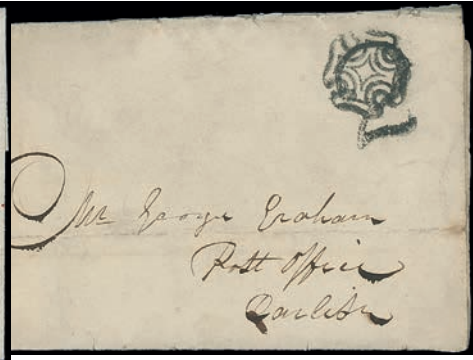 Mr George Graham
Post Office
Carlisle